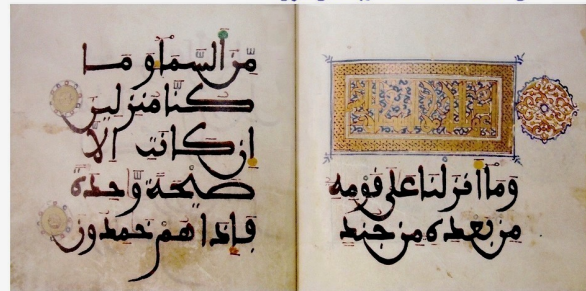 وما أنزلنا على قومه
من بعده من جند
مّن السّماء وما
كنّا منزلين
إن كانت إلا
صيحة وٰحدة
فإذا هم خمدون